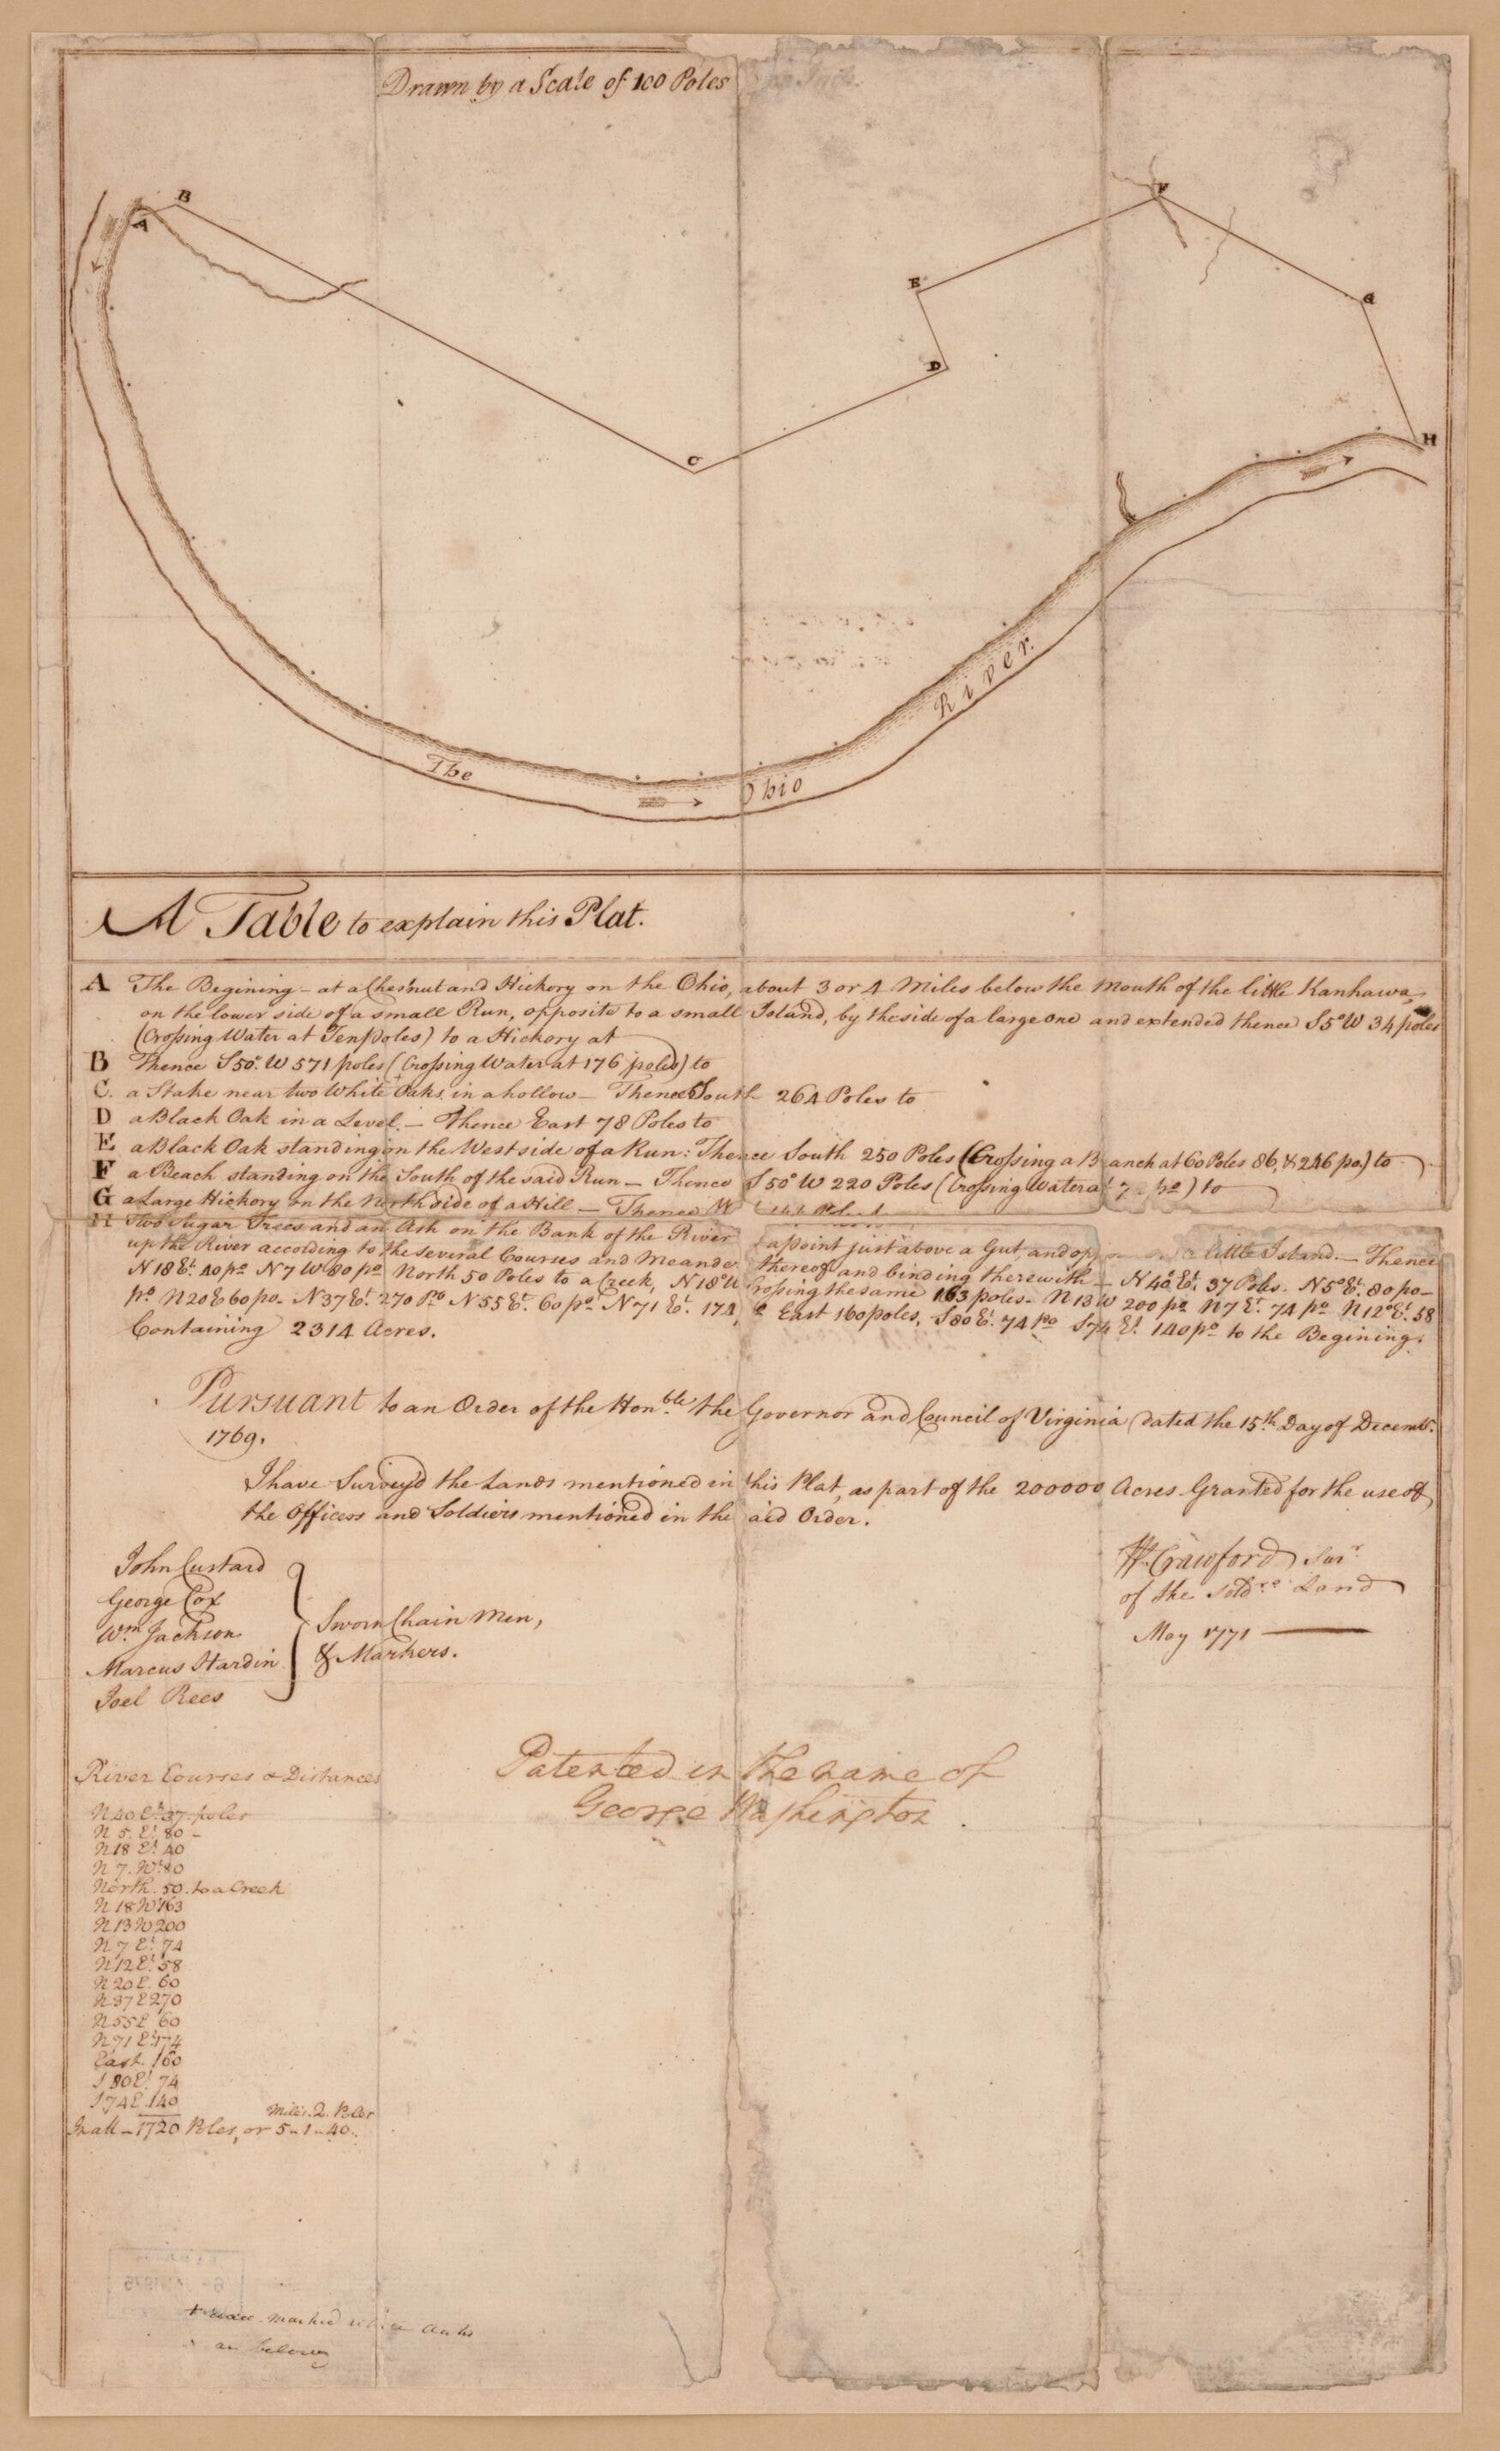 Drawn by a Scale of 100 Poles
A
B
C
D
E
F
G
H
The Ohio River.
A Table to explain this Plat.
A The Begining - at a Chesnut and Hickory on the Ohio, about 3 or 4 Miles below the Mouth of the little Kanhawa,
on the lower side of a small Run, opposite to a small Island, by the side of a large one and extended thence S5°W 34 poles
(Crossing Water at Ten poles) to a Hickory at
B Thence S50°. W 571 poles (Crossing Water at 176 poles) to
C. a Stake near two White Oaks in a hollow — Thence South 264 Poles to
D a Black Oak in a Level. — Thence East 78 Poles to
E a Black Oak standing on the West side of a Run: Thence South 250 Poles (Crossing a Branch at 60 Poles 86, & 246 po.) to
F a Beach standing on the South of the said Run — Thence S50° W 220 Poles (Crossing Water at po) to
G a Large Hickory on the North side of a Hill — Thence
H Two Sugar Trees and an Ash on the Bank of the River a point just above a Gut, and a little Island. — Thence
up the River accolding to the several Courses and Meande thereof and binding therewith — N40°Et. 37 Poles. N5°Et. 80 po—
N18Et. 40 po N7W 80 po North 50 Poles to a Creek, N18°W Crossing the same 163 poles. N13W 200 po N7Et. 74 po N12°Et. 58
po N20E 60 po. N37Et. 270 Po N55Et. 60 po N71Et. 174, East 160 poles, S80Et. 74 po S74Et 140 po to the Begining.
Containing 2314 Acres.
Pursuant to an Order of the Honble. the Governor and Council of Virginia dated the 15th. Day of Decemr.
1769.
I have Survey'd the Lands mentioned in this Plat, as part of the 200000 Acres Granted for the use of
the Officers and Soldiers mentioned in the aid Order.
John Custard
George Cox
Wm. Jackson
Marcus Hardin
Joel Rees
Sworn Chain Men,
& Markers.
W. Crawford Surr.
of the Soldrs. Land
May 1771
Patented in the name of
George Washington
River Courses & Distances
N40Et. 37. poles
N 5. Et. 80 -
N18 Et. 40
N 7. Wt. 80
North. 50. to a Creek
N 18 W 163
N 13 W 200
N 7 Et. 74
N12Et. 58
N20E. 60
N37E 270
N55E 60
N71 Et. 174
East. 160
S 80Et. 74
S74E. 140
Miles. Q. Poles
In all - 1720 Poles, or 5 .. 1 .. 40.